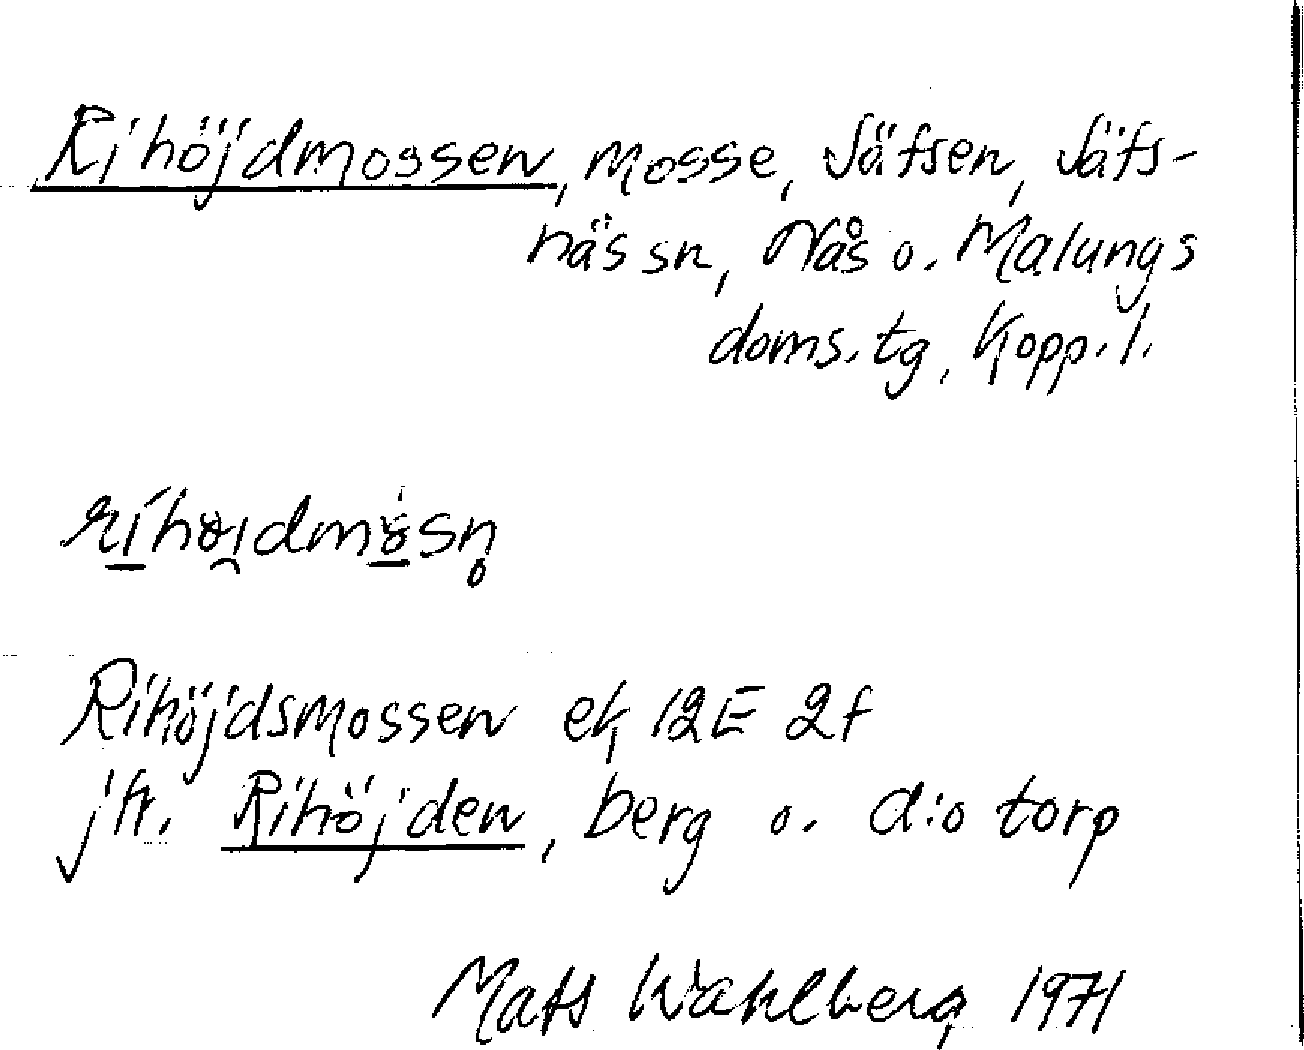 Rihöjdmossen, mosse, Säfsen, Säfs-
näs sn, Nås o. Malungs
doms. tg, Kopp. l.
Rihöjdsmossen ek 12E 2f
jfr. Rihöjden, berg o. d:o torp
Mats Wahlberg 1971